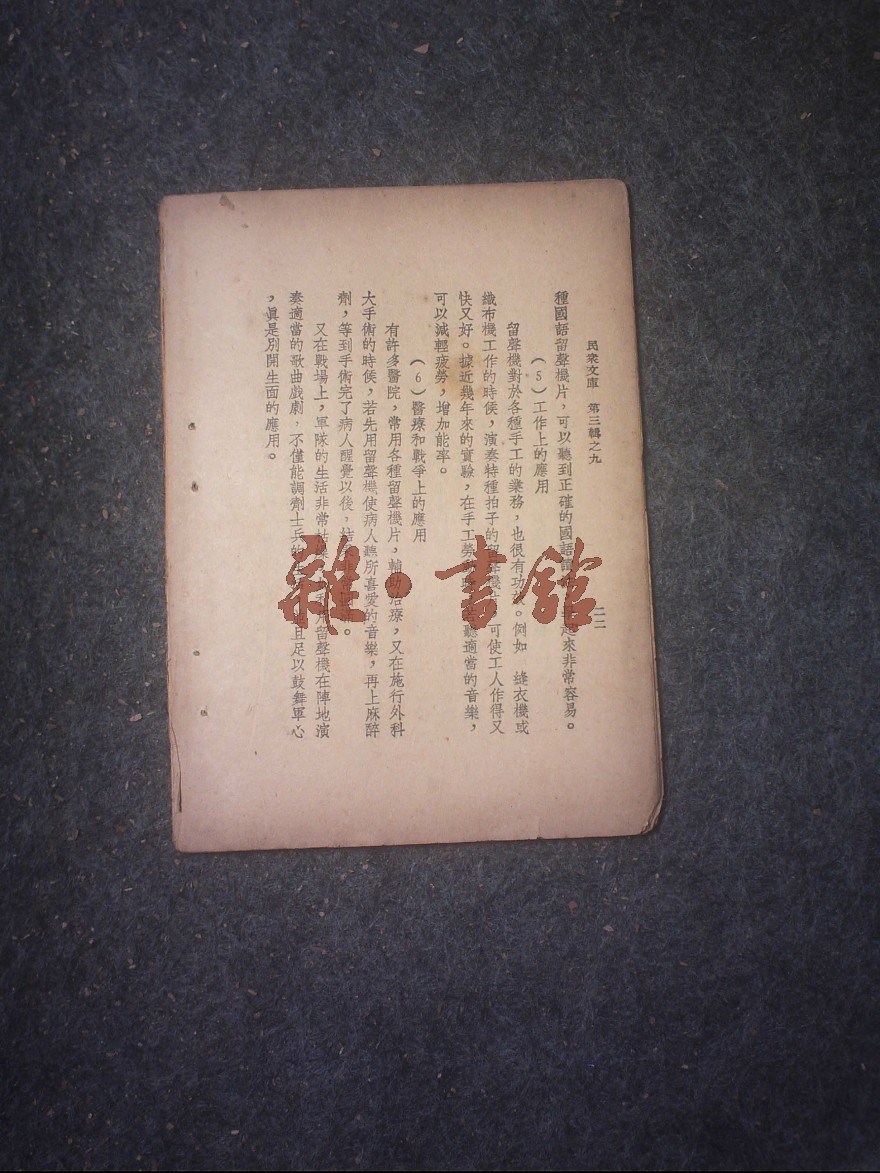 民衆文庫　第三輯之九
二二
種國語留聲機片，可以聽到正確的國語讀 來非常容易。
（5）工作上的應用
留聲機對於各種手工的業務，也很有功 。例如　縫衣機或
織布機工作的時候，演奏特種拍子的留聲機片 可使工人作得又
快又好。據近幾年來的實驗，在手工勞 聽適當的音樂，
可以減輕疲勞，增加能率。
（6）醫療和戰爭上的應用
有許多醫院，常用各種留聲機片，輔助治療，又在施行外科
大手術的時候，若先用留聲機使病人聽所喜愛的音樂，再上麻醉
劑，等到手術完了病人醒覺以後， 。
又在戰場上，軍隊的生活非常枯燥 留聲機在陣地演
奏適當的歌曲戲劇，不僅能調劑士兵的 且足以鼓舞軍心
，眞是別開生面的應用。
雜·書館